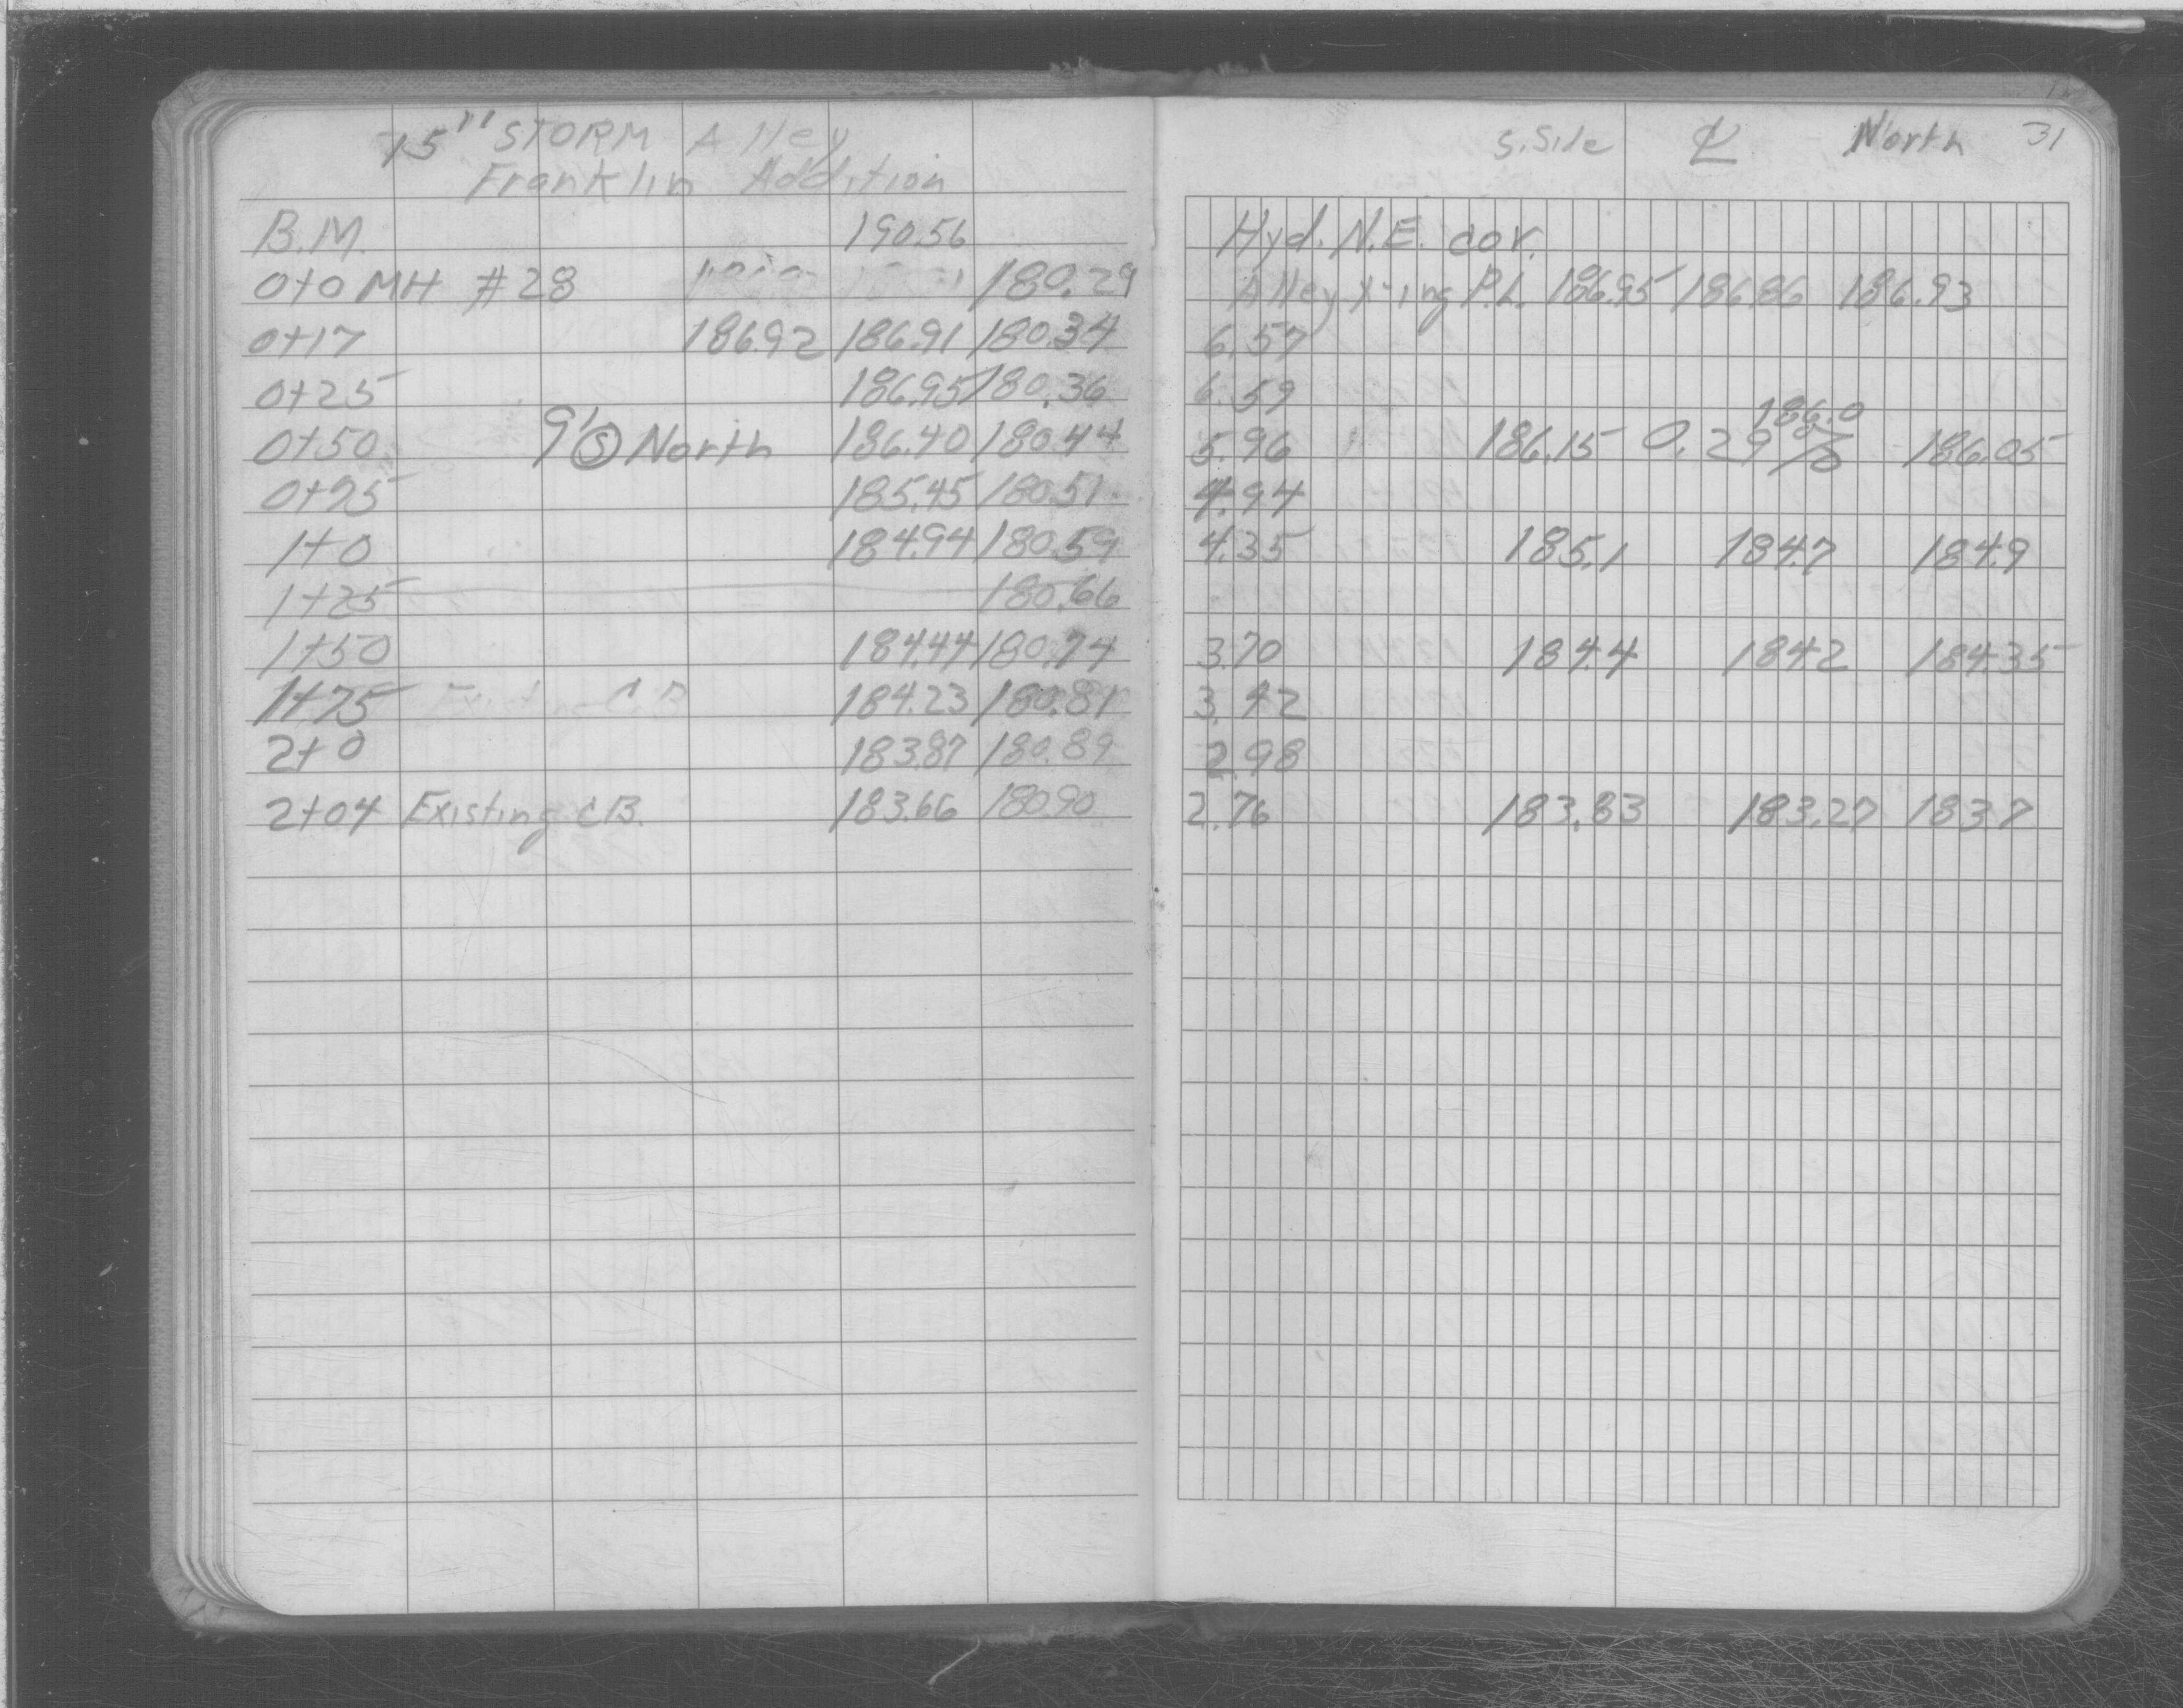 15" STORM Alley S. Side ℄ North 31
Franklin Addition
B.M. 190.56 Hyd. N.E. cor.
0+0 MH #28 180.29 Alley x-ing P.L. 186.95 186.86 186.93
0+17 186.92 186.91 180.34 6.57
0+25 186.95 180.36 6.59
186.0
0+50 9' Ⓢ North 186.40 180.44 5.96 186.15 0.29% 186.05
0+75 185.45 180.51 4.94
1+0 184.94 180.59 4.35 185.1 184.7 184.9
1+25 180.66
1+50 184.44 180.74 3.70 184.4 184.2 184.35
1+75 184.23 180.81 3.42
2+0 183.87 180.89 2.98
2+04 Existing CB. 183.66 180.90 2.76 183.83 183.27 183.7